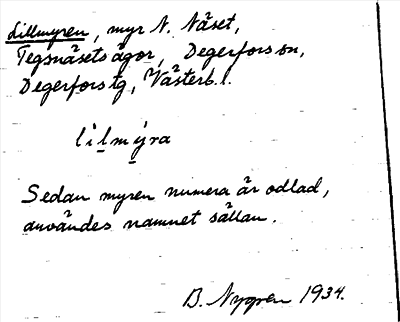 Lillmyren, myr N. Näset,
Tegsnäsets ägor, Degerfors sn,
Degerfors tg, Västerb. l.
lilmýra
Sedan myren numera är odlad,
användes namnet sällan.
B. Nygren 1934.